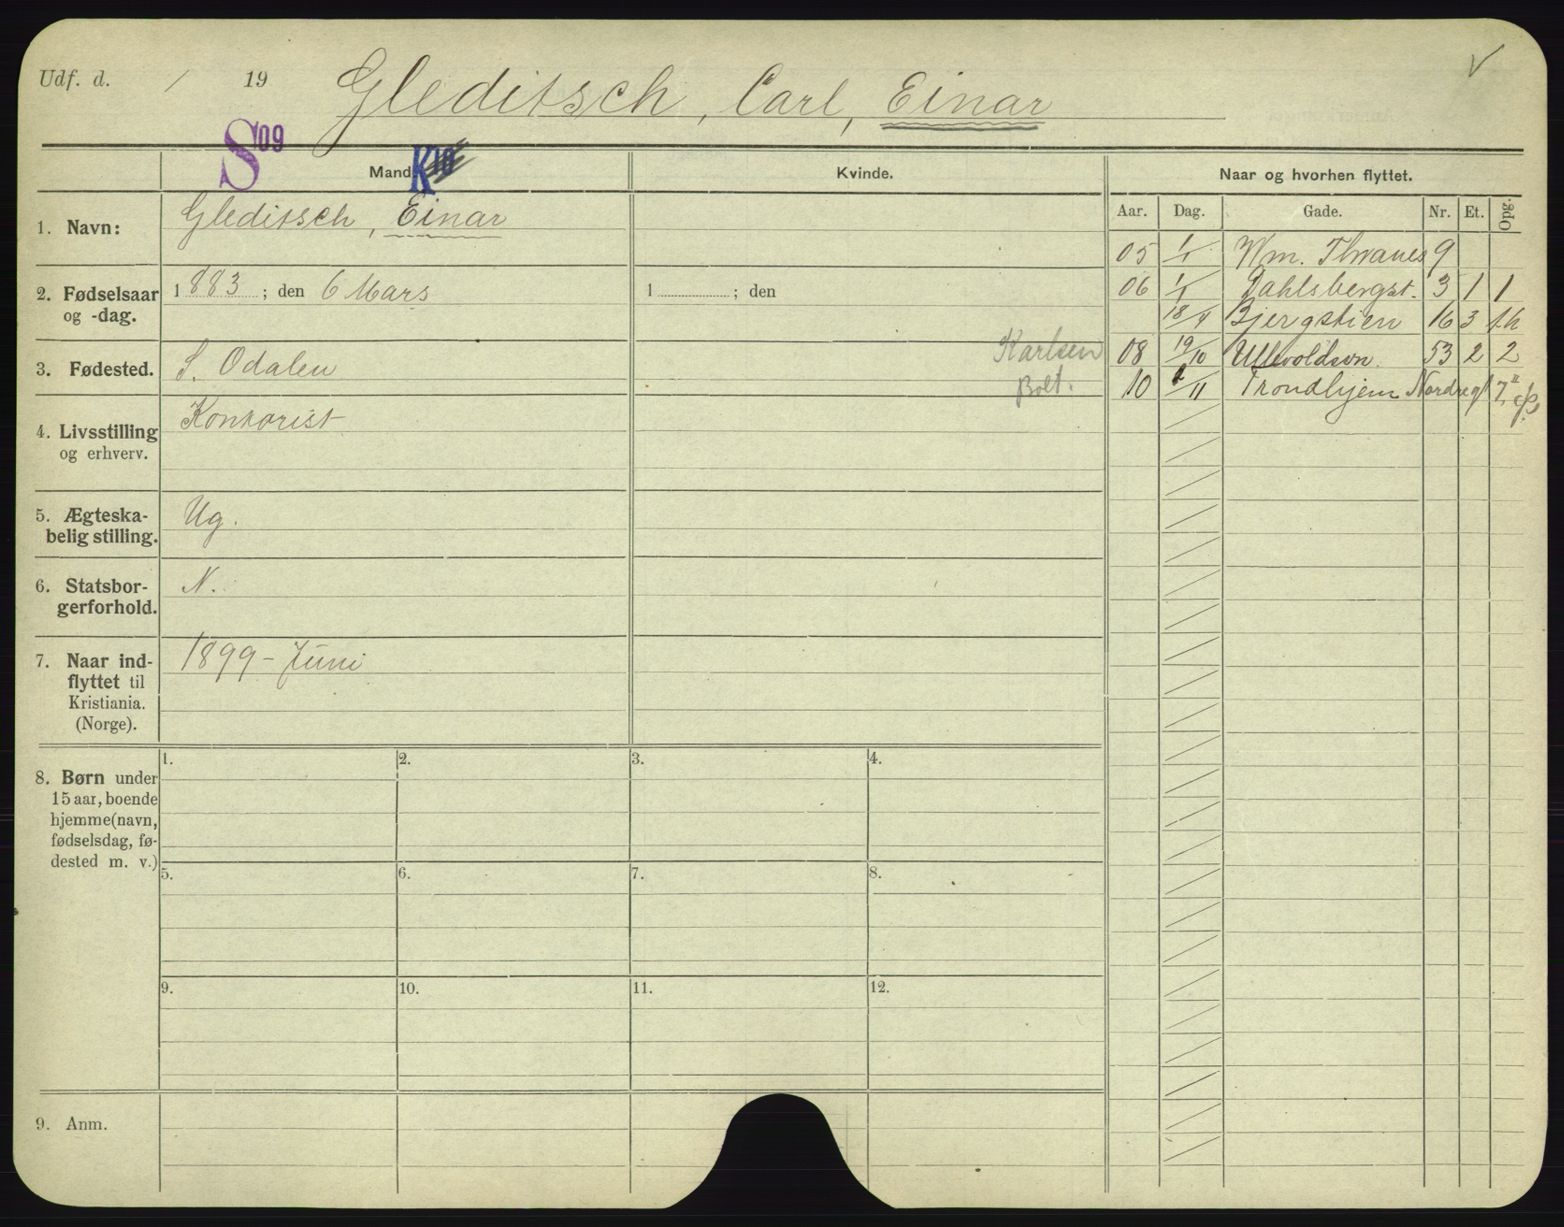 Udf. d. / 19 Gleditsch, Carl, Einar
S 09 K 10
Mand. Kvinde. Naar og hvorhen flyttet.
Aar. Dag. Gade. Nr. Et. Opg.
1. Navn: Gleditsch, Einar
2. Fødselsaar og -dag. 1883; den 6 Mars 1 ; den
3. Fødested. S. Odalen
4. Livsstilling og erhverv. Kontorist
5. Ægteskabelig stilling. Ug.
6. Statsborgerforhold. N.
7. Naar indflyttet til Kristiania. (Norge). 1899 - Juni
05 1/1 Wm. Thranes 9
06 1/1 Dahlsbergst. 3 1 1
18/4 Bjergstien 16 3 th
Karlsen 08 19/10 Ullevoldsvn. 53 2 2
Bolt. 10 /11 Trondhjem Nordregt 7
8. Børn under
15 aar, boende
hjemme (navn,
fødselsdag, fø-
dested m. v.)
1. 2. 3. 4.
5. 6. 7. 8.
9. 10. 11. 12.
9. Anm.